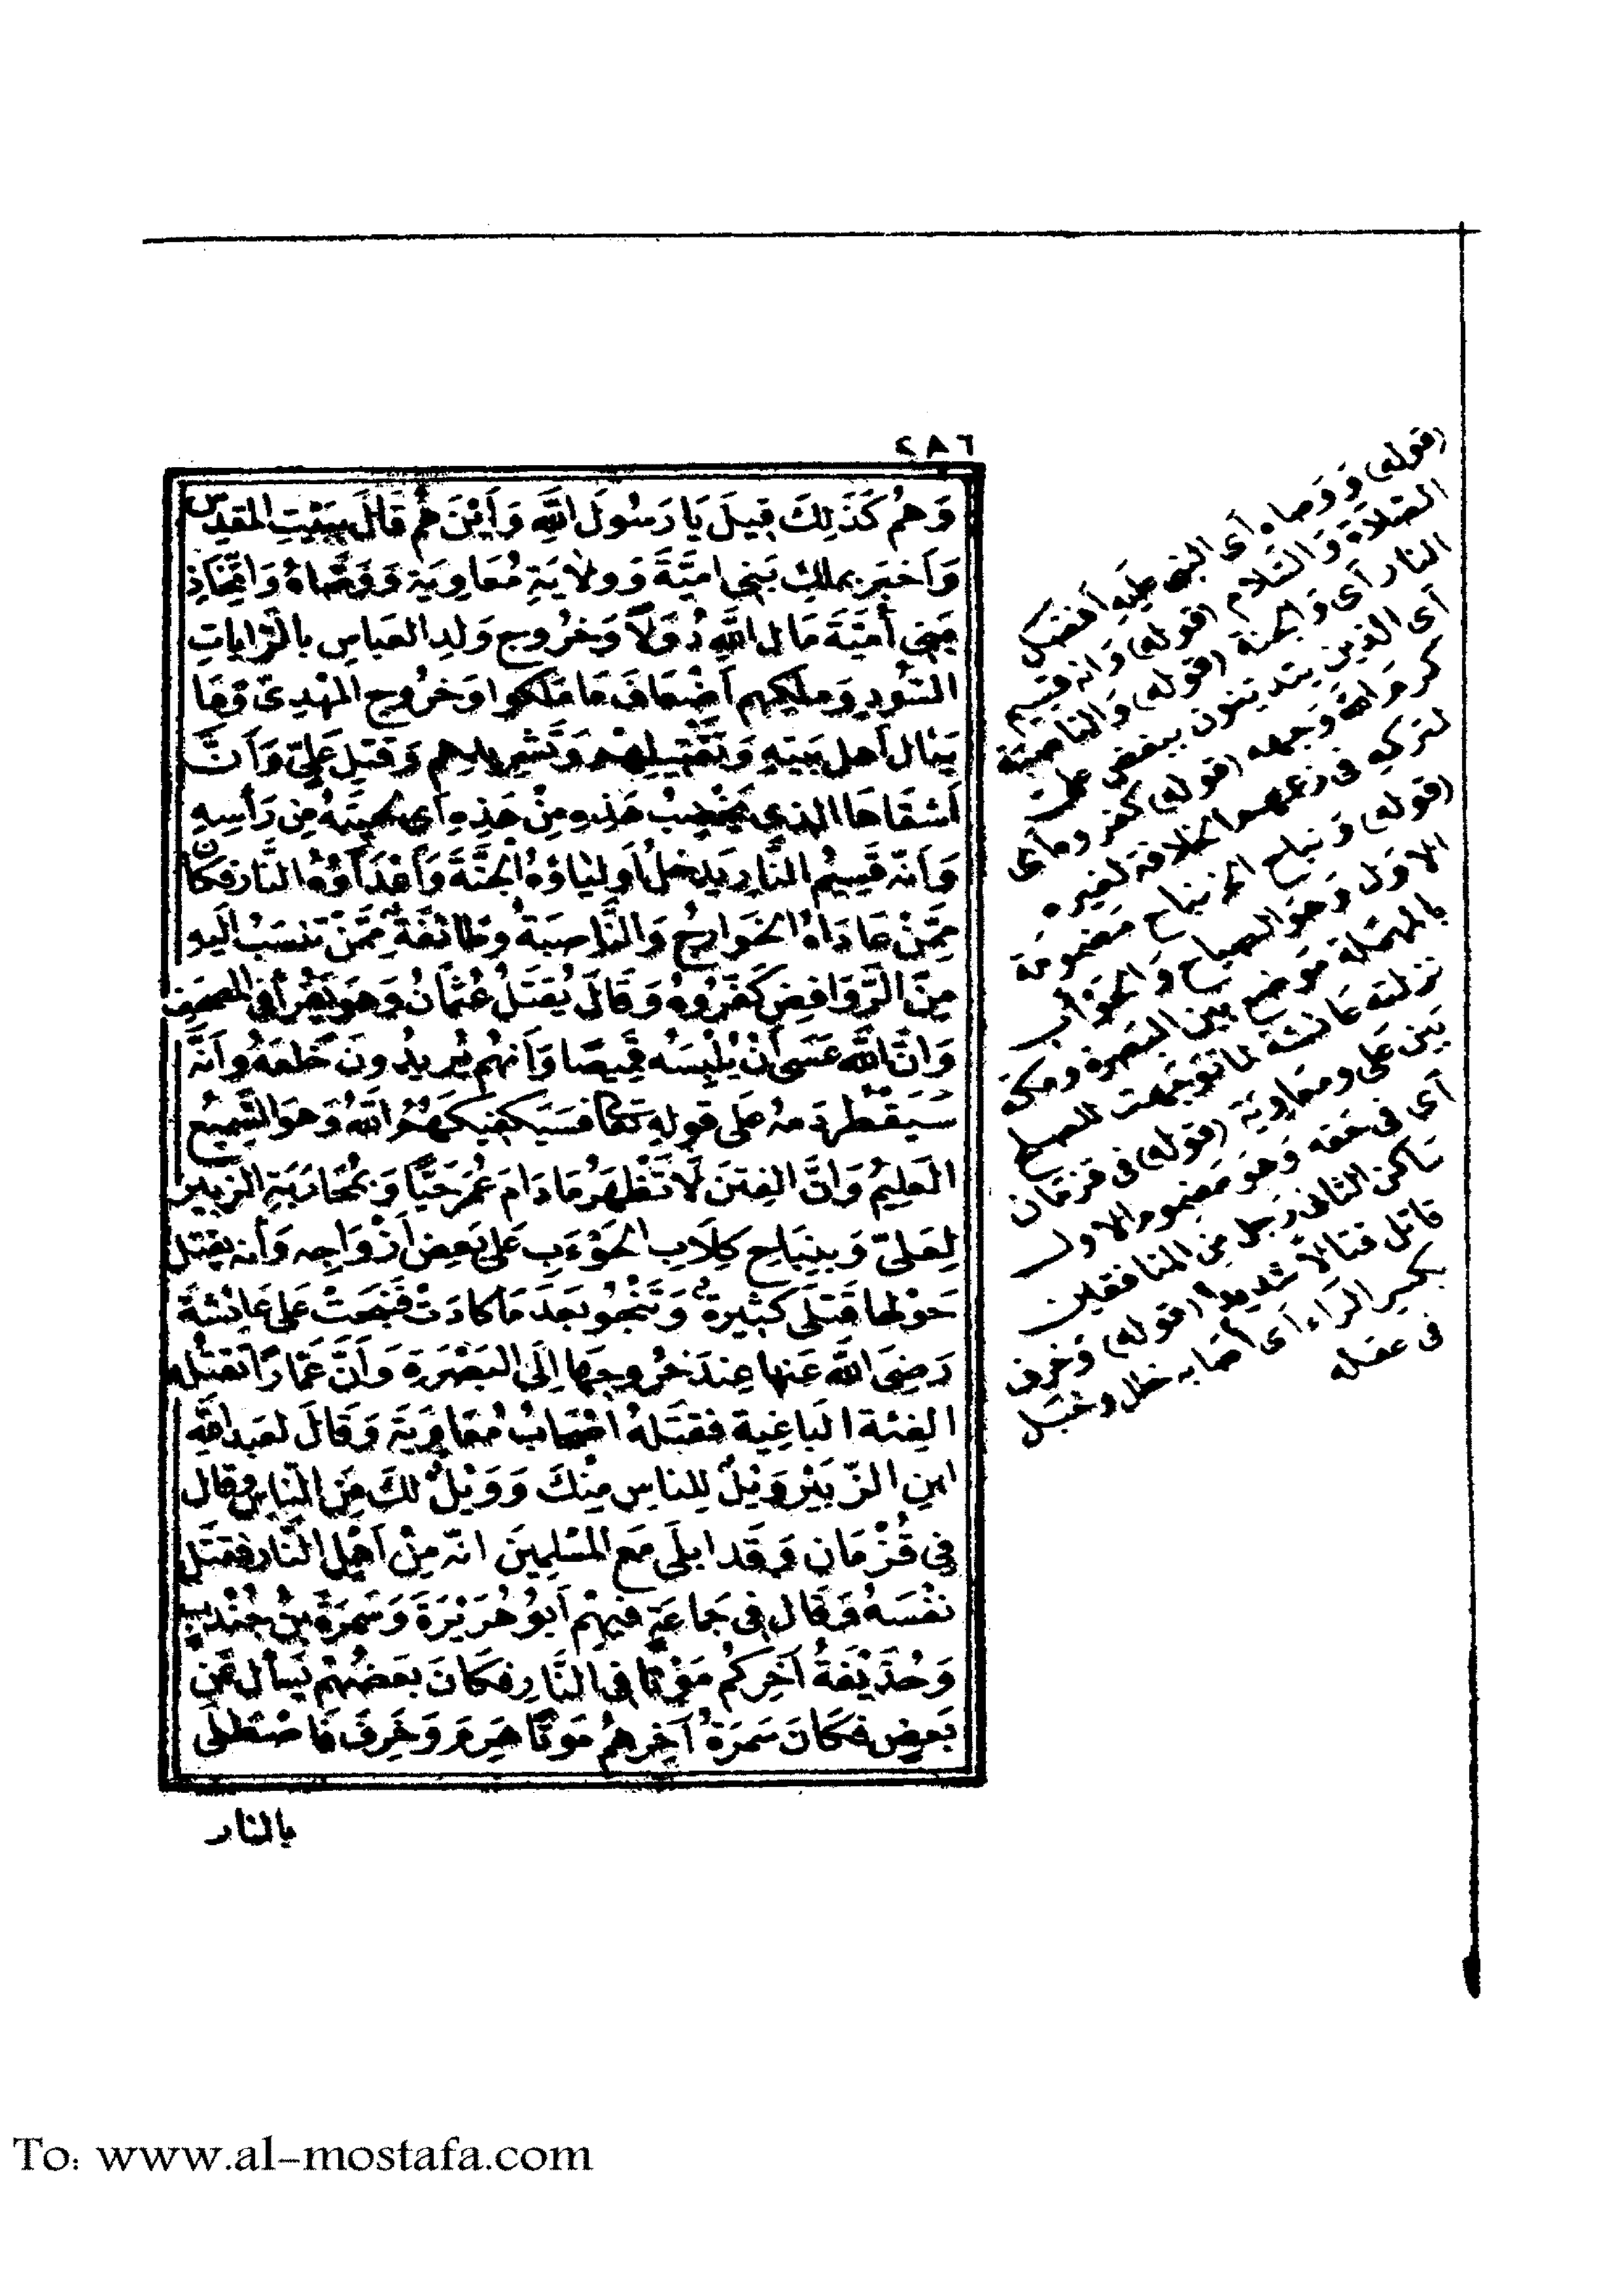 ٢٨٦
وَهُمْ كَذَلِكَ قِيلَ يَا رَسُولَ اللَّهِ وَأَيْنَ هُمْ قَالَ بِبَيْتِ المَقْدِسِ
وَأَخْبَرَ بِمُلْكِ بَنِي أُمَيَّةَ وَوِلَايَةِ مُعَاوِيَةَ وَوَصَّاهُ وَاتِّخَاذِ
بَنِي أُمَيَّةَ مَالَ اللَّهِ دُوَلًا وَخُرُوجِ وَلَدِ العَبَّاسِ بِالرَّايَاتِ
السُّودِ وَمُلْكِهِمْ أَضْعَافَ مَا مَلَكُوا وَخُرُوجِ المَهْدِيِّ وَمَا
يَنَالُ أَهْلَ بَيْتِهِ وَتَقْتِيلِهِمْ وَتَشْرِيدِهِمْ وَقَتْلِ عَلِيٍّ وَأَنَّ
أَشْقَاهَا الَّذِي يُخَضِّبُ هَذِهِ مِنْ هَذِهِ أَيْ لِحْيَتَهُ مِنْ رَأْسِهِ
وَأَنَّهُ قَسِيمُ النَّارِ يُدْخِلُ أَوْلِيَاؤُهُ الجَنَّةَ وَأَعْدَاؤُهُ النَّارَ فَكَانَ
مِمَّنْ عَادَاهُ الخَوَارِجُ وَالنَّاصِبَةُ وَطَائِفَةٌ مِمَّنْ تَنْسَبُ إِلَيْهِ
مِنَ الرَّوَافِضِ كَفَّرُوهُ وَقَالَ يُقْتَلُ عُثْمَانُ وَهُوَ يَقْرَأُ فِي المُصْحَفِ
وَأَنَّ اللَّهَ عَسَى أَنْ يُلْبِسَهُ قَمِيصًا وَأَنَّهُمْ يُرِيدُونَ خَلْعَهُ وَأَنَّهُ
سَيَقْطُرُ دَمُهُ عَلَى قَوْلِهِ تَعَالَى فَسَيَكْفِيكَهُمُ اللَّهُ وَهُوَ السَّمِيعُ
العَلِيمُ وَأَنَّ الفِتَنَ لَا تَظْهَرُ مَا دَامَ عُمَرُ حَيًّا وَبِمُحَارَبَةِ الزُّبَيْرِ
لِعَلِيٍّ وَبِنُبَاحِ كِلَابِ الحَوْءَبِ عَلَى بَعْضِ أَزْوَاجِهِ وَأَنَّهُ يُقْتَلُ
حَوْلَهَا قَتْلَى كَثِيرَةٌ وَتَنْجُو بَعْدَ مَا كَادَتْ فَنَبَحَتْ عَلَى عَائِشَةَ
رَضِيَ اللَّهُ عَنْهَا عِنْدَ خُرُوجِهَا إِلَى البَصْرَةِ وَأَنَّ عَمَّارًا تَقْتُلُهُ
الفِئَةُ البَاغِيَةُ فَقَتَلَهُ أَصْحَابُ مُعَاوِيَةَ وَقَالَ لِعَبْدِ اللَّهِ
ابْنِ الزُّبَيْرِ وَيْلٌ لِلنَّاسِ مِنْكَ وَوَيْلٌ لَكَ مِنَ النَّاسِ وَقَالَ
فِي قُزْمَانَ وَقَدْ أَبْلَى مَعَ المُسْلِمِينَ إِنَّهُ مِنْ أَهْلِ النَّارِ فَقَتَلَ
نَفْسَهُ وَقَالَ فِي جَمَاعَةٍ فِيهِمْ أَبُو هُرَيْرَةَ وَسَمُرَةُ بْنُ جُنْدُبٍ
وَحُذَيْفَةُ آخِرُكُمْ مَوْتًا فِي النَّارِ فَكَانَ بَعْضُهُمْ يَسْأَلُ عَنْ
بَعْضٍ فَكَانَ سَمُرَةُ آخِرَهُمْ مَوْتًا هَرِمَ وَخَرِفَ فَاصْطَلَى
بالنار
(قوله) ووصاه أى النبى عليه أفضل
الصلاة والسلام (قوله) وانه قسيم
النار أى والجنة (قوله) والناصبة
أى الذين يتدينون ببغض على
كرم الله وجهه (قوله) كفروه أى
لتركه فى زعمهم الخلافة لغيره
(قوله) ونباح الخ نباح مضمومة
الاول وهو الصياح والحوأب
بالمهملة موضع بين البصرة ومكة
نزلته عائشة لما توجهت للصلح
بين على ومعاوية (قوله) فى قزمان
أى فى حقه وهو مضموم الاول
ساكن الثانى رجل من المنافقين
قاتل قتالا شديدا (قوله) وخرف
بكسر الراء أى أصابه خلل وخبل
فى عقله
To: www.al-mostafa.com